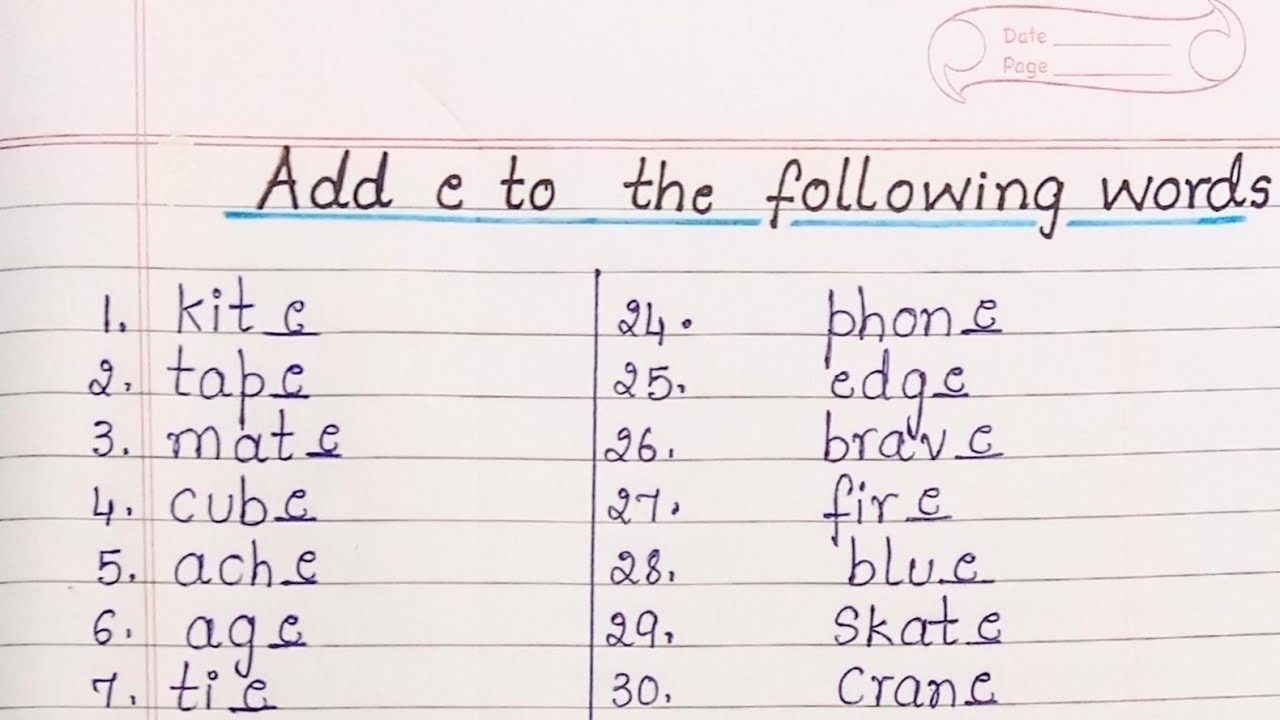 Date
Page
Add e to the following words
1. kite
2. tape
3. mate
4. cube
5. ache
6. age
7. tie
24. phone
25. edge
26. brave
27. fire
28. blue
29. skate
30. crane